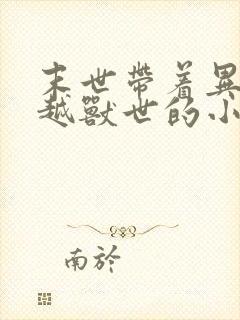 末世帶着異
越獸世的小
南於